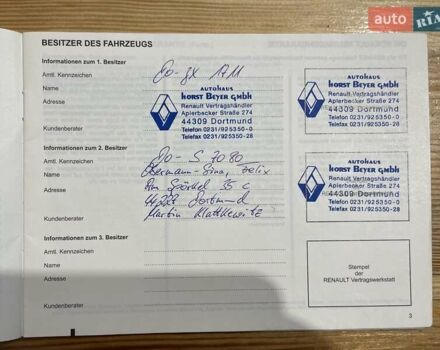 auto RIA
BESITZER DES FAHRZEUGS
Informationen zum 1. Besitzer
Amtl. Kennzeichen
Do-gx 1711
Name
Adresse
Kundenberater
AUTOHAUS
HORST BEYER GMBH
Renault Vertragshändler
Aplerbecker Straße 274
44309 Dortmund
Telefon 0231/925350-0
Telefax 0231/925350-28
AUTOHAUS
HORST BEYER GMBH
Renault Vertragshändler
Aplerbecker Straße 274
44309 Dortmund
Telefon 0231/925350-0
Telefax 0231/925350-28
Informationen zum 2. Besitzer
Amtl. Kennzeichen
Do-S 7080
Name
Obermann-Sina, Felix
Adresse
Am Spörkel 35 c
Dortmund
Kundenberater
Martin
AUTOHAUS
HORST BEYER GMBH
Renault Vertragshändler
Aplerbecker Straße 274
44309 Dortmund
Telefon 0231/925350-0
Telefax 0231/925350-28
Informationen zum 3. Besitzer
Amtl. Kennzeichen
Name
Adresse
Kundenberater
Stempel
der
RENAULT Vertragswerkstatt
3